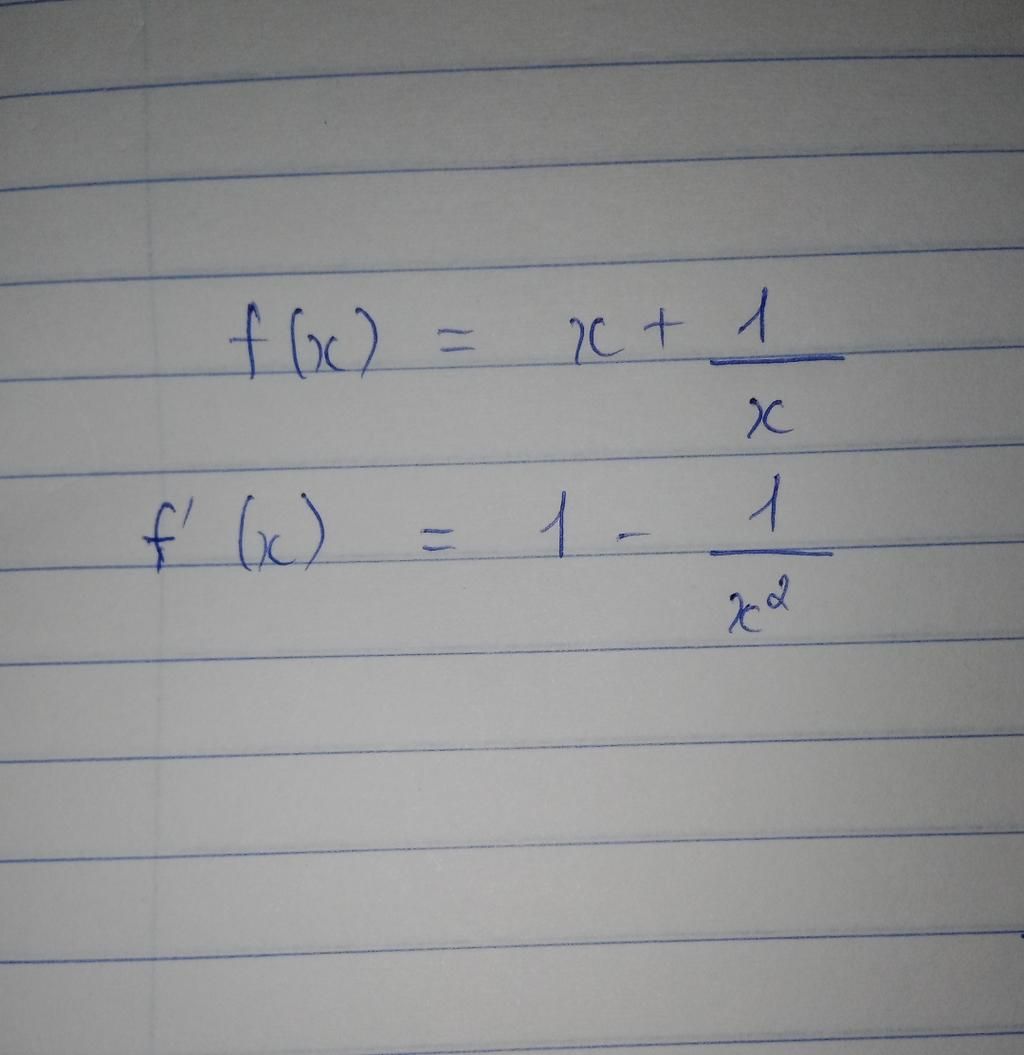 f(x) = x + 1/x
f'(x) = 1 - 1/x²